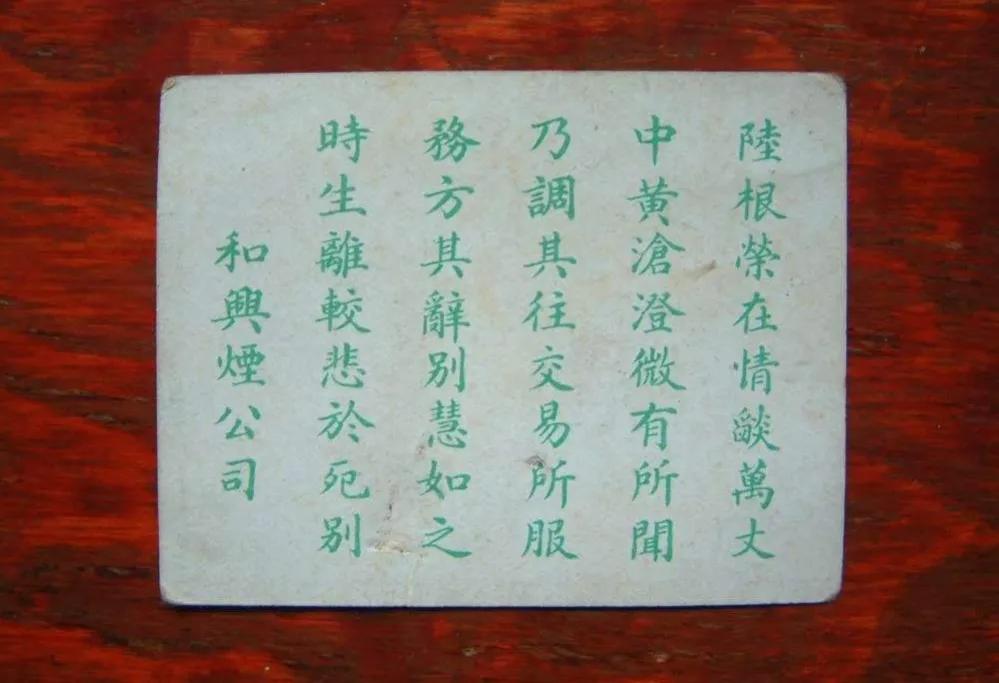 陸根榮在情燄萬丈
中黃滄澄微有所聞
乃調其往交易所服
務方其辭別慧如之
時生離較悲於死別
和興煙公司